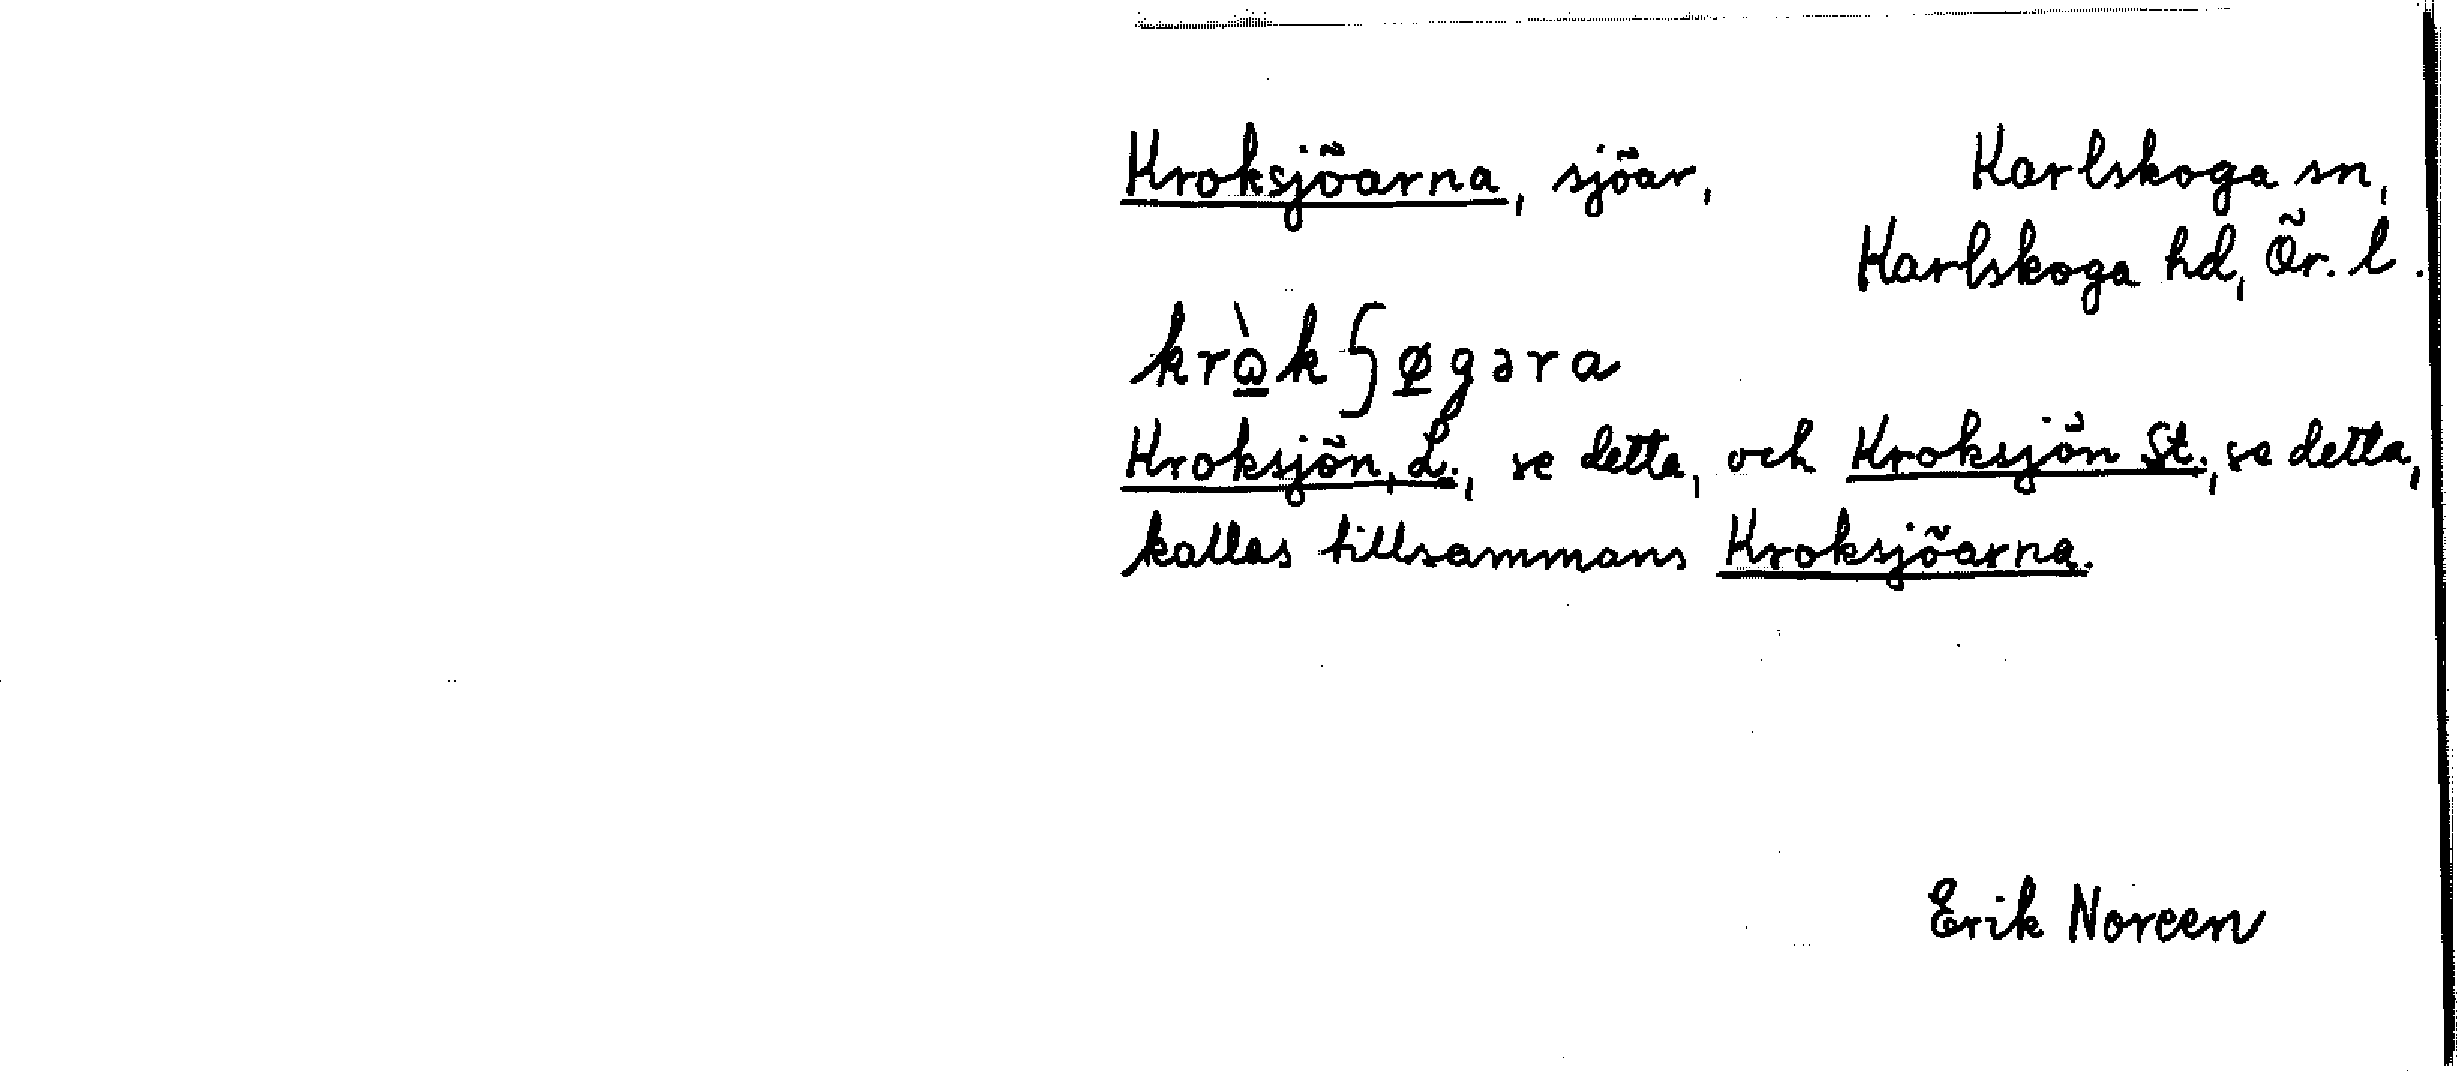 Kroksjöarna, sjöar, Karlskoga sn,
Karlskoga hd, Ör. l.
krὼ̲kʃø̲gəra
Kroksjön, L., se detta, och Kroksjön St., se detta,
kallas tillsammans Kroksjöarna.
Erik Noreen